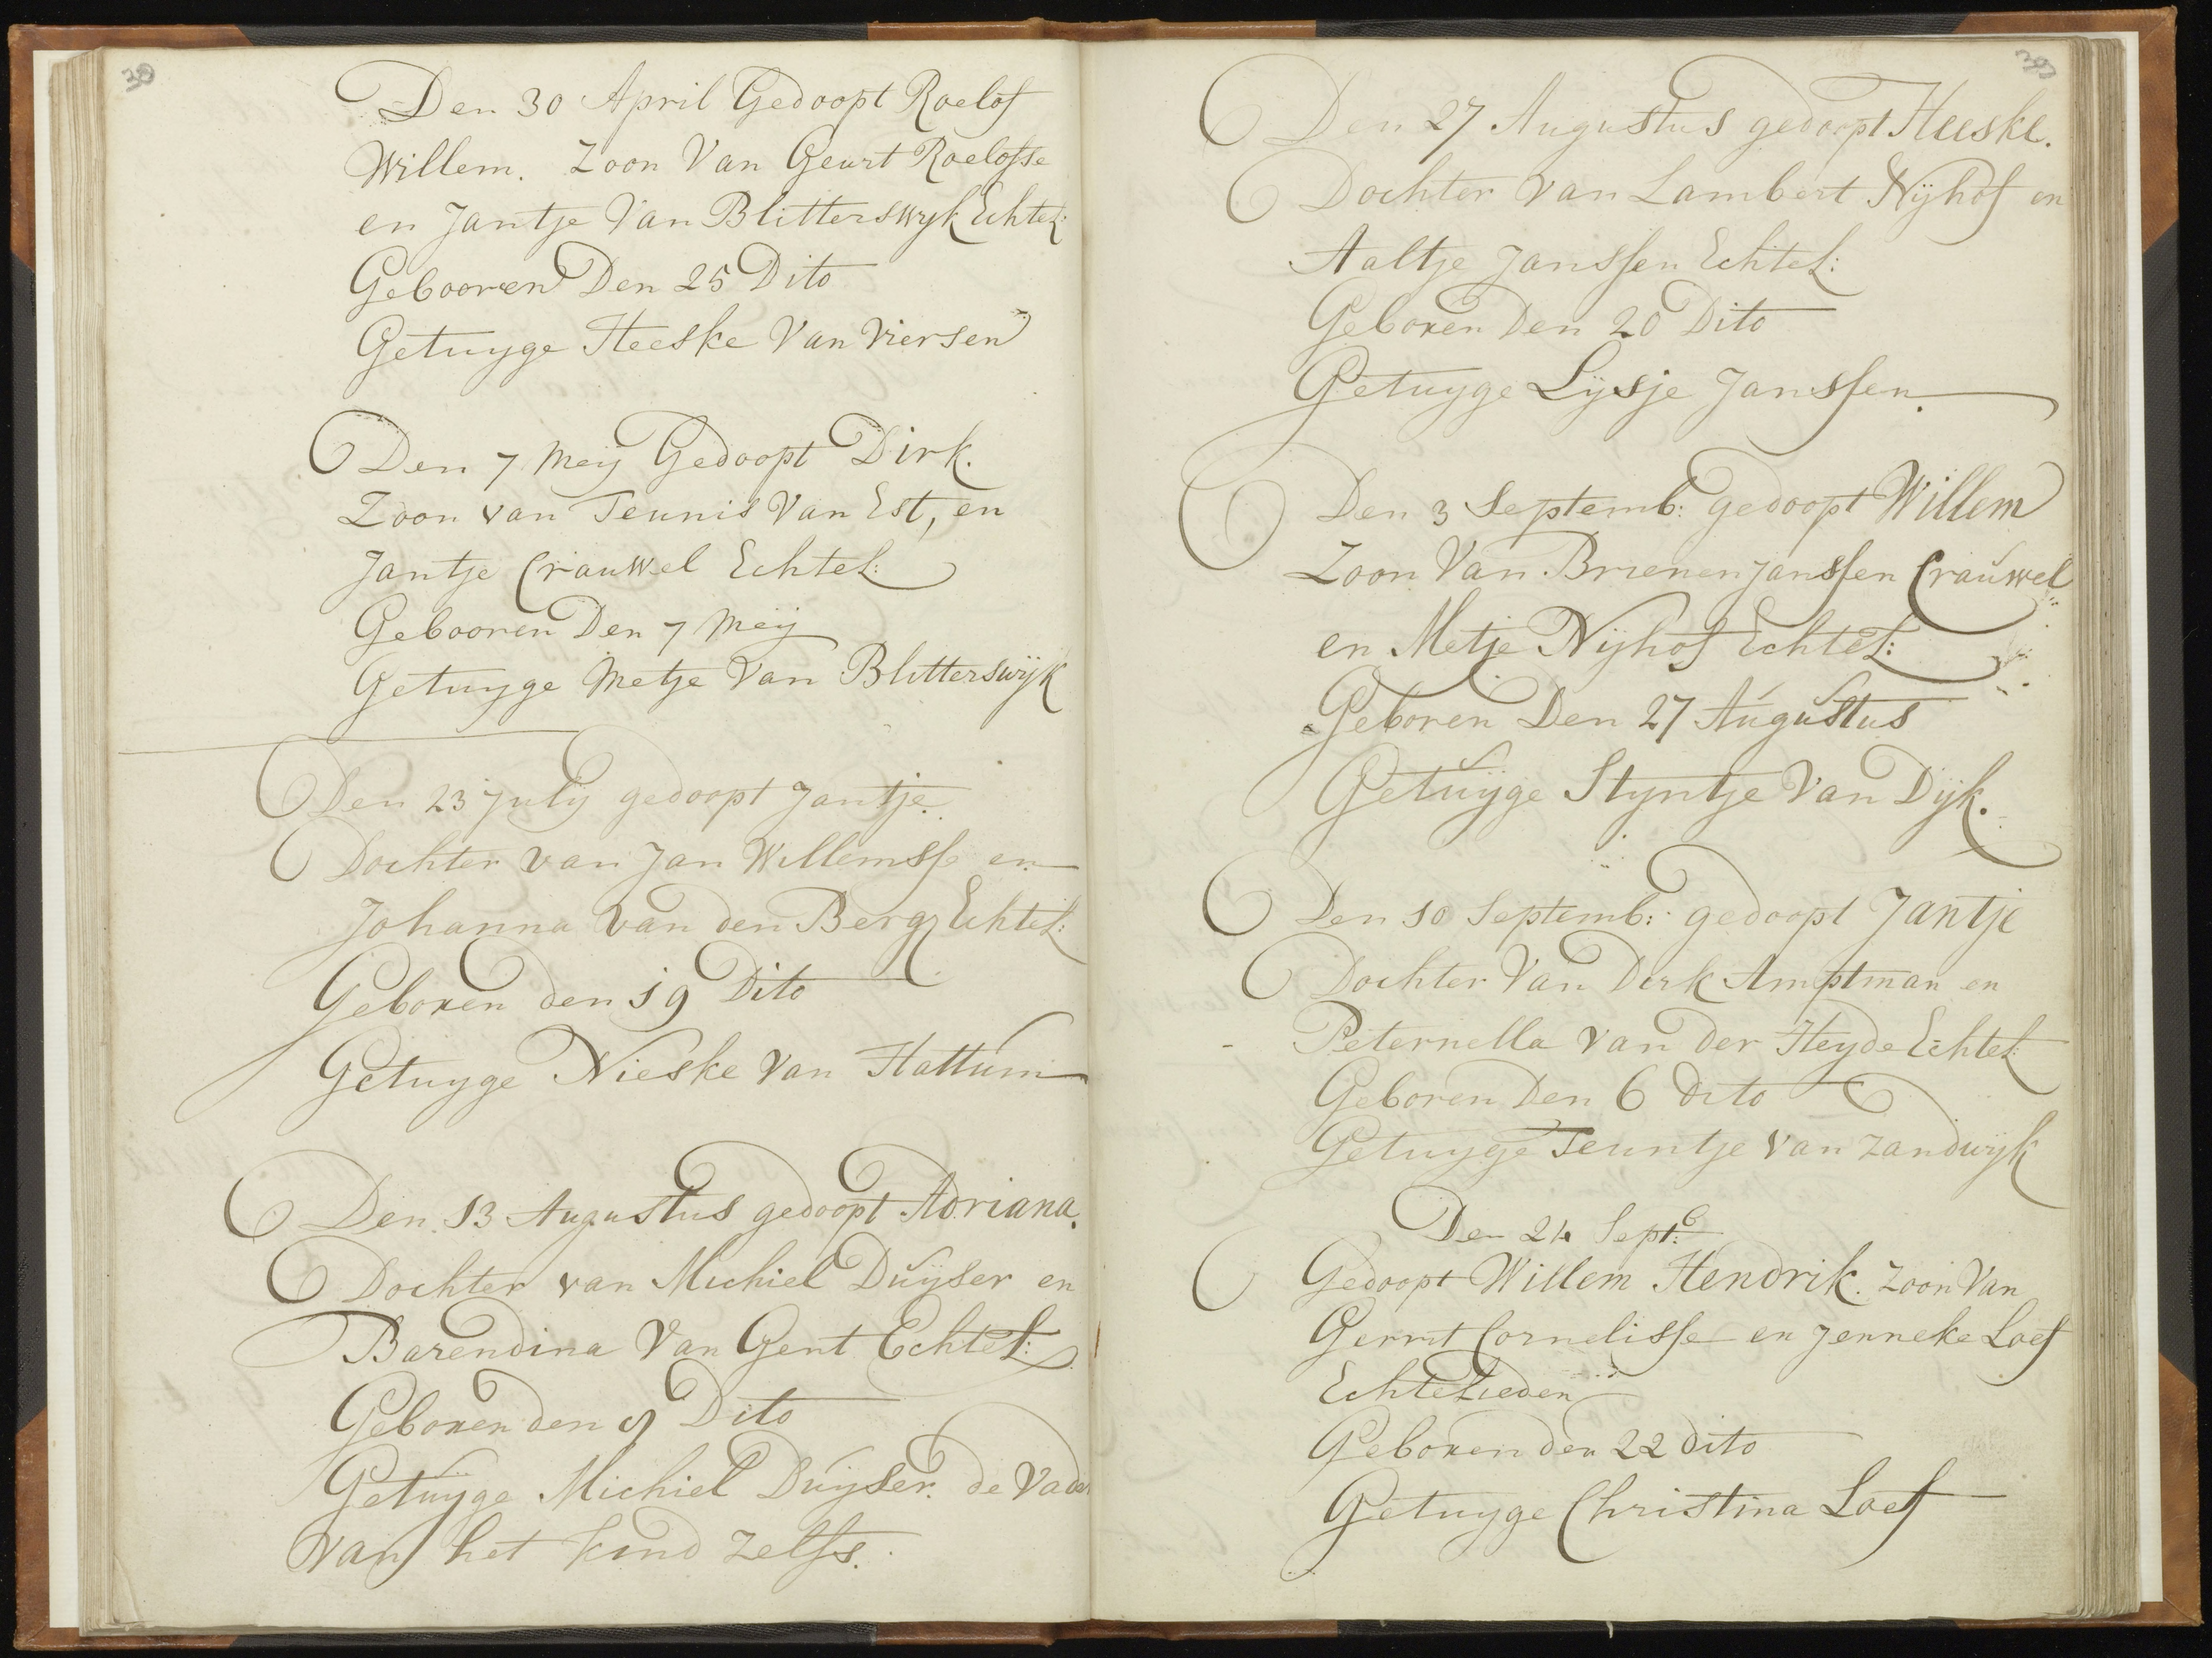 Den 30 April Gedoopt Roelof
Willem. Zoon Van Geurt Roelofse
en Jantje Van Blitterswyk Echtel:
Gebooren Den 25 Dito
Getuyge Heeske Van Viersen
Den 7 Meij Gedoopt Dirk.
Zoon van Teunis Van Est, en
Jantje Crauwel Echtel:
Gebooren Den 7 Meij
Getuyge Metje Van Blitterswijk
Den 23 July gedoopt Jantje.
Dochter van Jan Willemsse en
Johanna van den Berg Echtel:
Geboren den 19 Dito
Getuyge Nieske Van Hattum
Den 13 Augustus gedoopt Adriana.
Dochter van Michiel Duijser en
Barendina Van Gent Echtel:
Geboren den 9 Dito
Getuyge Michiel Duijser. de Vader
van het kind zelfs.
39
Den 27 Augustus gedoopt Heeske.
Dochter Van Lambert Nijhof en
Aaltje Janssen Echtel:
Geboren Den 20 Dito
Getuyge Lijsje Janssen.
Den 3 Septemb: gedoopt Willem
Zoon Van Brienen Janssen Crauwel
en Metje Nijhof Echtel:
Geboren Den 27 Augustus
Getuijge Styntje Van Dijk.
Den 10 Septemb: gedoopt Jantje
Dochter Van Derk Amptman en
Peternella van der Heyde Echtel:
Geboren Den 6 dito
Getuyge Teuntje van Zandwijk
Den 24 Septb:
Gedoopt Willem Hendrik. Zoon Van
Gerrit Cornelisse en Jenneke Loef
Echtelieden
Geboren den 22 dito
Getuyge Christina Loef